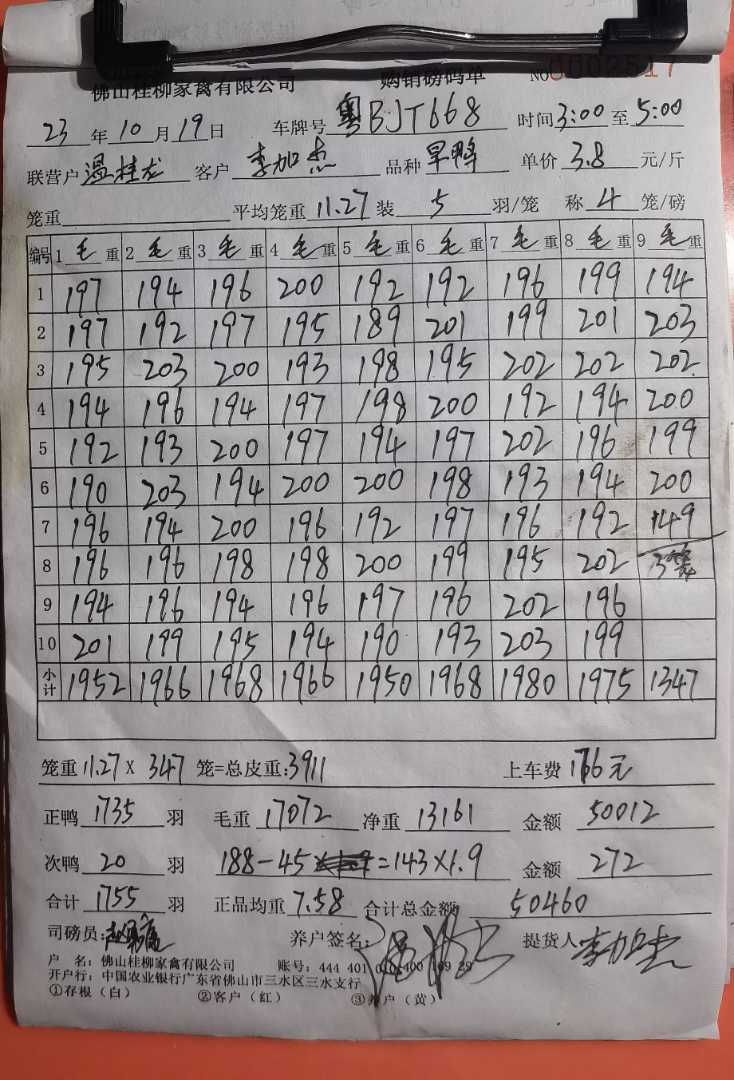 佛山桂柳家禽有限公司 购销磅码单 NO 0002517
23 年 10 月 19 日 车牌号 粤BJT668 时间 3:00 至 5:00
联营户 温桂龙 客户 李加杰 品种 旱鸭 单价 3.8 元/斤
笼重 平均笼重 11.27 装 5 羽/笼 称 4 笼/磅
编号 1 毛 重 2 毛 重 3 毛 重 4 毛 重 5 毛 重 6 毛 重 7 毛 重 8 毛 重 9 毛 重
1 197 194 196 200 192 192 196 199 194
2 197 192 197 195 189 201 199 201 203
3 195 203 200 193 198 195 202 202 202
4 194 196 194 197 198 200 192 194 200
5 192 193 200 197 194 197 202 196 199
6 190 203 194 200 200 198 193 194 200
7 196 194 200 196 192 197 196 192 149
8 196 196 198 198 200 199 195 202 3笼
9 194 196 194 196 197 196 202 196
10 201 199 195 194 190 193 203 199
小计 1952 1966 1968 1966 1950 1968 1980 1975 1347
笼重 11.27 X 347 笼=总皮重:3911 上车费 166元
正鸭 1735 羽 毛重 17072 净重 13161 金额 50012
次鸭 20 羽 188-45 =143×1.9 金额 272
合计 1755 羽 正品均重 7.58 合计总金额 50460
司磅员: 养户签名: 提货人 李加杰
户 名: 佛山桂柳家禽有限公司 账号: 444 401 010 400 109 29
开户行: 中国农业银行广东省佛山市三水区三水支行
①存根(白) ②客户(红) ③养户(黄)